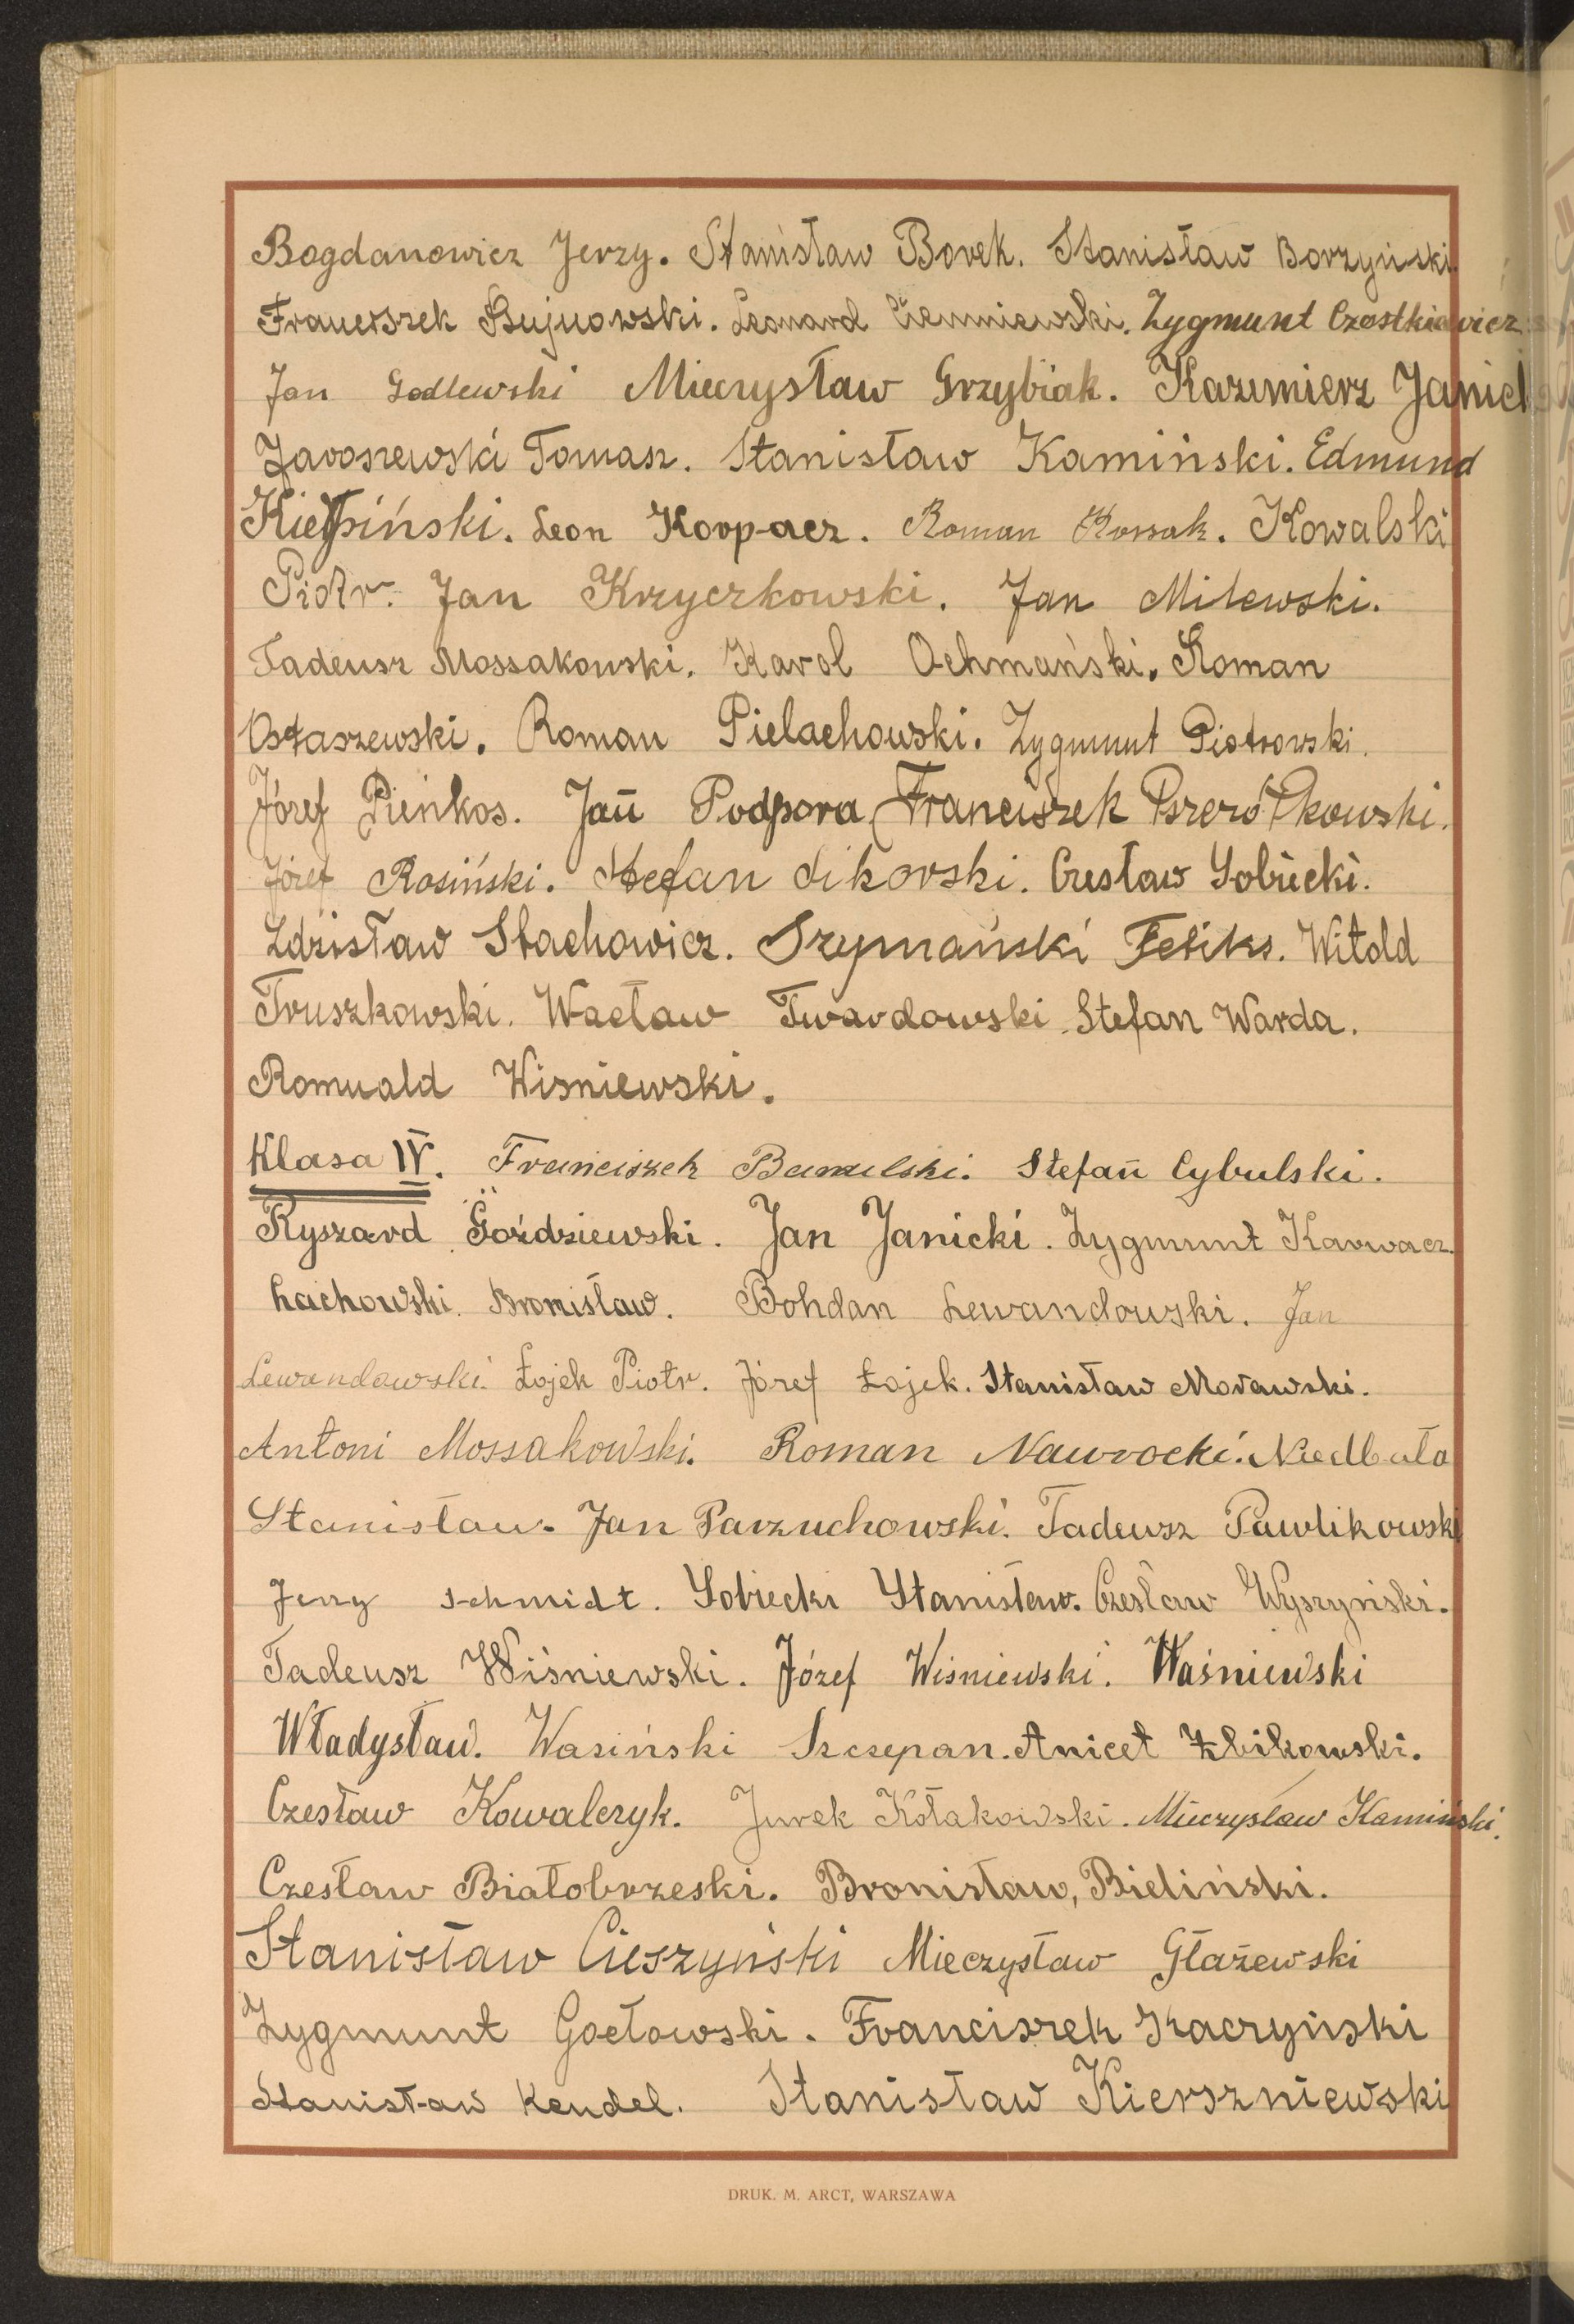 Bogdanowicz Jerzy. Stanisław Borek. Stanisław Borzyński
Franciszek Bujnowski. Leonard Ciemniewski. Zygmunt Czostkiewicz
Jan Godlewski Mieczysław Grzybiak. Kazimierz Janiel
Jaroszewski Tomasz. Stanisław Kamiński. Edmund
Kiełpiński. Leon Korpacz. Roman Kossak. Kowalski
Piotr. Jan Krzyczkowski. Jan Milewski.
Tadeusz Mossakowski. Karol Ochmański. Roman
Ostaszewski. Roman Pielachowski. Zygmunt Piotrowski.
Józef Pieńkos. Jan Podpora Franciszek Pszczółkowski.
Józef Rosiński. Stefan Sikorski. Czesław Sobiecki.
Zdzisław Stachowicz. Szymański Feliks. Witold
Truszkowski. Wacław Twardowski. Stefan Warda.
Romuald Wiśniewski.
Klasa IV. Franciszek Stefan Cybulski.
Ryszard Goździewski. Jan Janicki. Zygmunt Karwacz.
Lachowski Bronisław. Bohdan Lewandowski. Jan
Lewandowski. Łojek Piotr. Józef Łojek. Stanisław Morawski.
Antoni Mossakowski. Roman Nawrocki. Niedbała
Stanisław. Jan Parzuchowski. Tadeusz Pawlikowski
Jerzy Schmidt. Sobiecki Stanisław. Czesław Wyszyński.
Tadeusz Wiśniewski. Józef Wiśniewski. Waśniewski
Władysław. Wasiński Szczepan. Anicet Żbikowski.
Czesław Kowalczyk. Jurek Kołakowski. Mieczysław Kamiński.
Czesław Białobrzeski. Bronisław, Bieliński.
Stanisław Cieszyński Mieczysław Głażewski
Zygmunt Gocłowski. Franciszek Kaczyński
Stanisław Kendel. Stanisław Kierszniewski
DRUK. M. ARCT, WARSZAWA